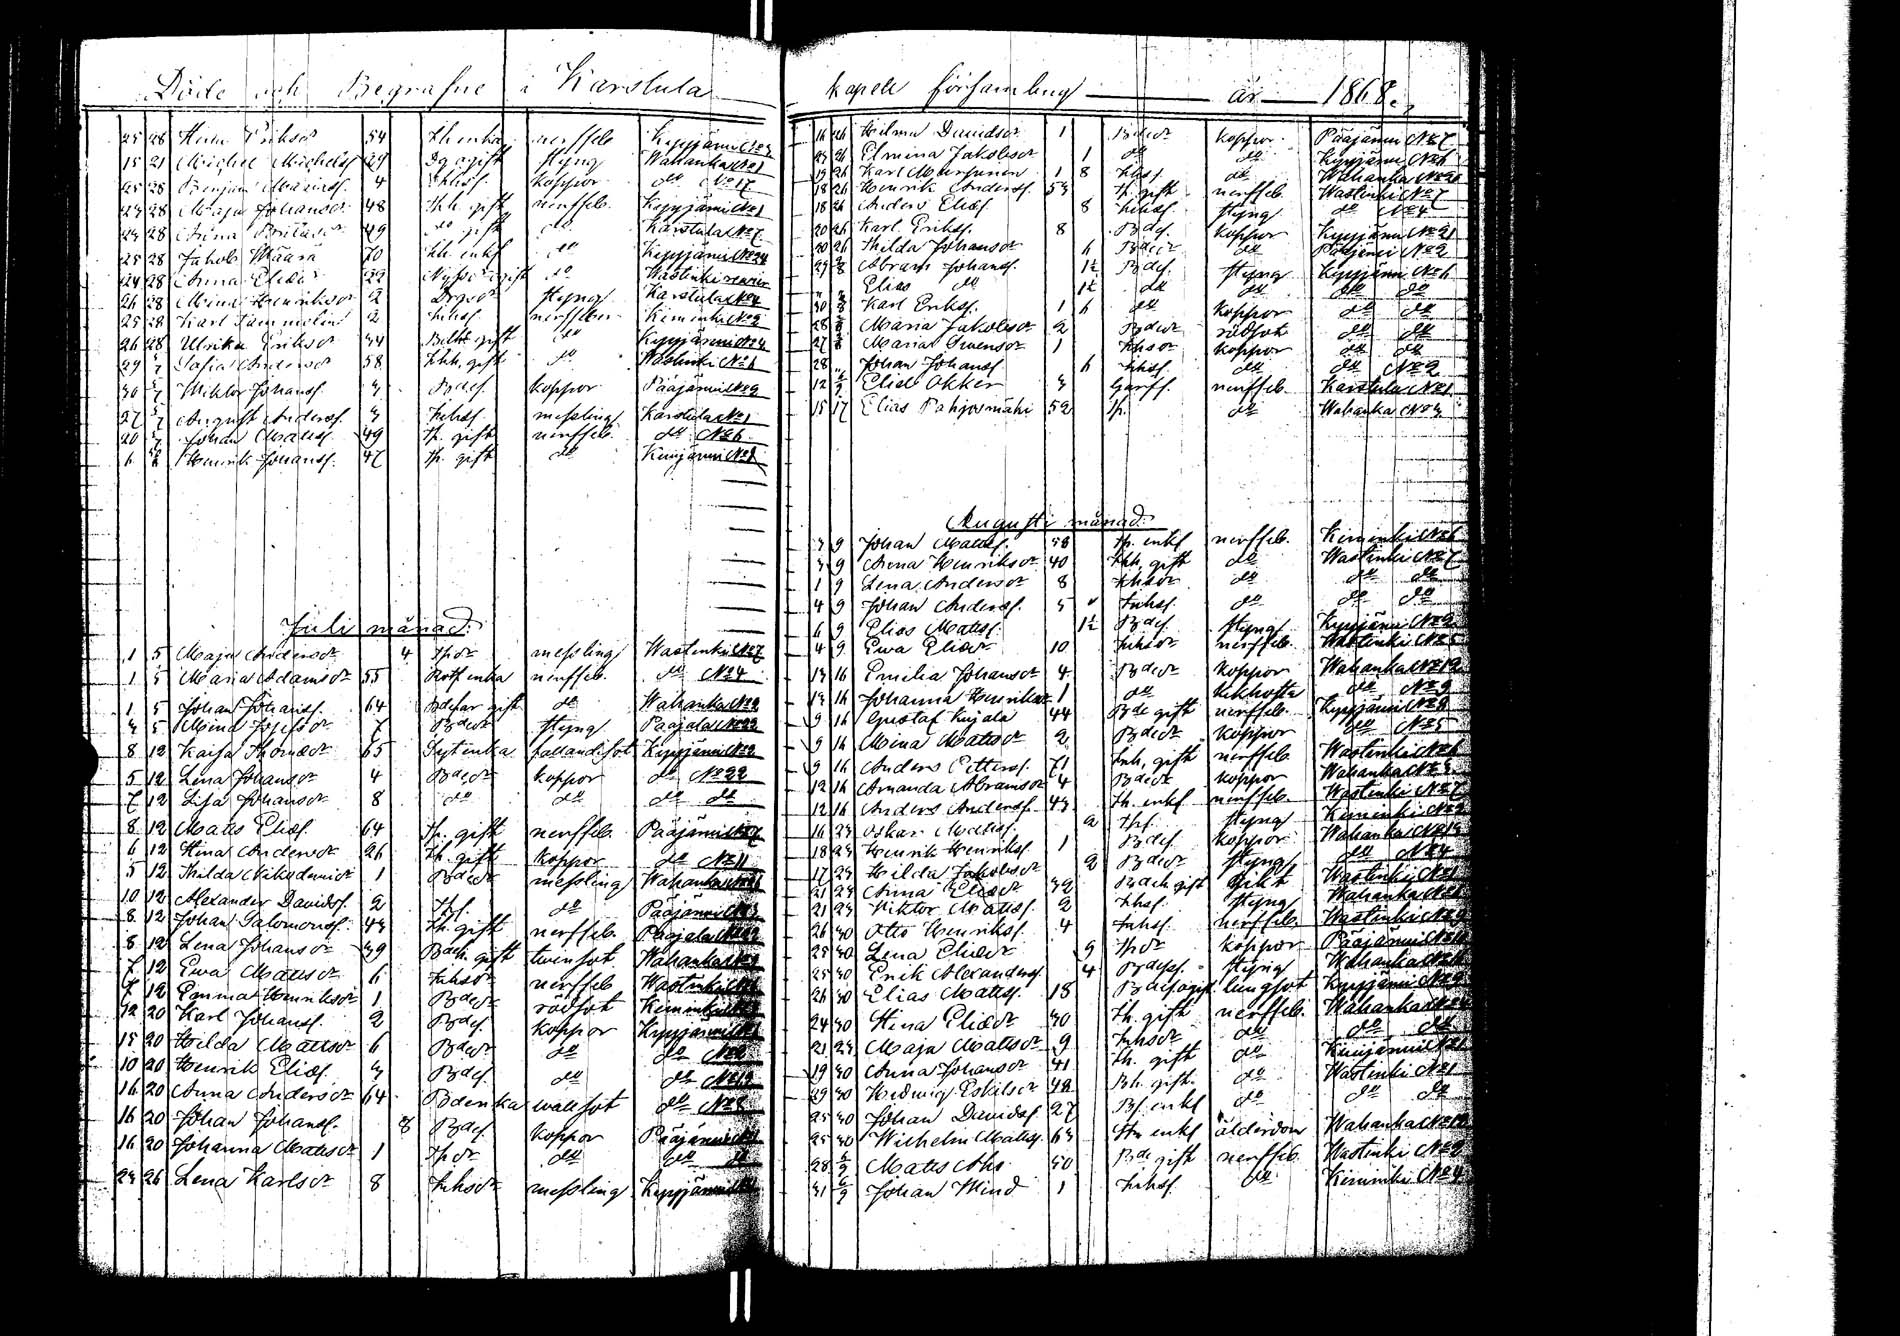 Döde och Begrafne i Karstula kapell församling år 1868.
25 28 Eriksdr 54 enka nerffeb. Kyyjärvi No 3
15 21 Michel Michelsf 29 ogift styng Wahanka No 1
25 28 Benjam 4 Inhsf. koppor do No 17
24 28 Maja Johansdr 48 Inh. gift nerffeb. Kyyjärvi No 1
24 28 Anna 49 do gift do Karstula No 7
25 28 Jakob Määrä 70 Inh. enkl do Kyyjärvi No 24
24 28 Anna Eliædr 22 do Wastinki
26 28 Mina Henriksdr 2 styng Karstula No 4
25 28 Karl 2 Inhsf. nerffeber Kiminki No 2
26 28 Ulrika Eriksdr 34 gift do Kyyjärvi No 4
29 5/7 Sofia Andersdr 58 Inh. gift do Wastinki No 6
30 5/7 Wiktor Johansf. 3 Bdesf. koppor Pääjärvi No 2
27 5/7 August Andersf. 3 Inhsf. messling Karstula No 1
20 5/7 Johan Mattsf. 49 Th. gift nerffeb. do No 6
6 Henrik Johansf. 47 Th. gift do Kuijärvi No 1
Juli månad.
1 5 Maja Andersdr 4 Thdr messling Wastinki No 7
1 5 Maria Adamsdr 55 enka nerffeb. do No 4
1 5 Johan Johansf. 64 gift do Wahanka No 2
3 5 Mina Josefsdr 7 Bdedr styng Pääjala No 22
8 12 Kaisa Thomædr 65 Sytenka fallandesot Kyyjärvi No 2
5 12 Lena Johansdr 4 Bdedr koppor do No 22
7 12 Lisa Johansdr 8 do do do do
8 12 Matts Eliæf. 64 Th. gift nerffeb Pääjärvi No 7
6 12 Stina Andersdr 26 Th. gift koppor do No 11
5 12 Hilda Nikodemidr 1 Bdedr messling Wahanka
10 12 Alexander Davidsf. 2 Thf. do Pääjärvi No 3
8 12 Johan Salomonsf. 43 Th. gift nerffeb. Pääjala No 22
8 12 Lena Johansdr 39 Bdeh. gift twinsot Wahanka
7 12 Ewa Mattsdr 6 Inhsdr nerffeb Wastinki
7 12 Emma Henriksdr 1 Bdedr rödsot Kiminki
12 20 Karl Johansf. 2 Bdesf. koppor Kyyjärvi
15 20 Hilda Mattsdr 6 Bdedr do do
10 20 Henrik Eliæf. 3 Bdesf do do No 12
16 20 Anna Andersdr 64 Bdenka wattsot do No 8
16 20 Johan Johansf. 8 Bdesf koppor Pääjärvi
16 20 Johanna Mattsdr 1 Thdr do do do
23 26 Lena Karlsdr 8 Inhsdr messling Kyyjärvi
16 26 Hilma Davidsdr 1 Bdedr koppor Pääjärvi No 7
23 26 Elmina Jakobsdr 1 do do Kyyjärvi No 6
19 26 Karl Murtonen 1 8 Inhsf. do Wahanka No 20
18 26 Henrik Andersf. 53 Th. gift nerffeb Wastinki No 7
18 26 Anders Eliæf 8 Inhsf. styng do No 4
20 26 Karl Eriksf. 8 Bdesf. koppor Kyyjärvi No 21
20 26 Hilda Johansdr 6 Bdedr do Pääjärvi No 2
29 2/8 Abram Johansf. 1½ Bdesf. styng Kyyjärvi No 6
" Elias do 1½ do do do do
30 2/8 Karl Eriksf. 1 6 do koppor do do
28 2/8 Maria Jakobsdr 2 Bdedr rödsot do do
27 2/8 Maria Swensdr 1 Inhsdr koppor do do
28 " Johan Johansf 6 Inhsf. do do No 2
12 Elias Okker 3 nerffeb Karstula No 1
15 17 Elias Pahjosmäki 52 Th. do Wahanka No 3
Augusti månad.
3 9 Johan Mattsf. 58 Th. enkl nerffeb. Kiminki No 6
3 9 Anna Henriksdr 40 Inh. gift do Wastinki No 7
1 9 Lena Andersdr 8 Inhsdr do do do
4 9 Johan Andersf. 5 " Inhsf. do do do
6 9 Elias Mattsf. 1½ Bdesf. styng Kyyjärvi No 2
4 9 Ewa Eliædr 10 Inhsdr nerffeb. Wastinki No 5
13 16 Emilia Johansdr 4 Bdedr koppor Wahanka No 12
13 16 Johanna Henriksdr 1 do kikhosta do No 9
9 16 Gustaf Kujala 44 Bde gift nerffeb. Kyyjärvi No 8
9 16 Mina Mattsdr 2 Bdedr koppor do No 5
9 16 Anders Pettersf. 71 Inh. gift nerffeb Wastinki No 6
12 16 Amanda Abramsdr 4 Bdedr koppor Wahanka No 3
12 16 Anders Andersf. 43 Th. enkl nerffeb. Wastinki No 7
16 23 Oskar Mattsf. 2 Thf. styng Kiminki No 2
18 23 Henrik Henriksf. 1 Bdesf. koppor Wahanka No 13
17 23 Hilda Jakobsdr 2 Bdedr styng do No 4
21 23 Anna Eliædr 32 Bdeh gift gikt Wastinki No 1
21 23 Viktor Mattsf. 2 Inhsf. styng Wahanka
26 30 Otto Henriksf. 4 Inhsf. nerffeb. Wastinki No 9
25 30 Lena Eliædr 9 Thdr koppor Pääjärvi
25 30 Erik Alexandersf. 4 Bdesf. styng Wahanka
26 30 Elias Mattsf. 18 ogift lungsot Kyyjärvi
24 30 Stina Eliædr 30 Th. gift nerffeb. Wahanka
21 23 Maja Mattsdr 9 Inhsdr do do do
19 30 Anna Johansdr 41 Th. gift do Kuijärvi
29 30 Hedwig Eskilsdr 48 Bh. gift. do Wastinki No 1
25 30 Johan Davidsf 27 Bf. enkl do do do
25 30 Wilhelm Mattsf. 63 enkl ålderdom Wahanka No 12
28 6/9 Matts Aho 50 Bde gift nerffeb Wastinki No 8
31 6/9 Johan Wind 1 Inhsf. do Kiminki No 4